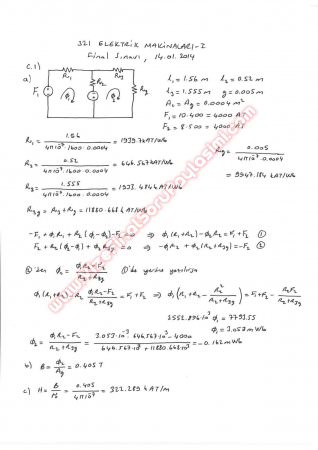 321 ELEKTRİK MAKİNALARI-2
Final Sınavı, 14.01.2014
C.1)
a)
R₁ R₃ l₁ = 1.56 m l₂ = 0.52 m
R₂ l₃ = 1.555 m g = 0.005 m
F₁ ϕ₁ ϕ₂ Rg Ac = Ag = 0.0004 m²
F₁ = 10.400 = 4000 AT
F₂ F₂ = 8.500 = 4000 AT
R₁ = 1.56 / 4π10⁻⁷.1600.0.0004 = 1939.7kAT/Wb
Rg = 0.005 / 4π10⁻⁷.0.0004
R₂ = 0.52 / 4π10⁻⁷.1600.0.0004 = 646.567kAT/Wb
= 9947.184 kAT/Wb
R₃ = 1.555 / 4π10⁻⁷.1600.0.0004 = 1933.484kAT/Wb
R₃g = R₃ + Rg = 11880.668 kAT/Wb
-F₁ + ϕ₁R₁ + R₂(ϕ₁-ϕ₂) - F₂ = 0 ⇒ ϕ₁(R₁+R₂) - ϕ₂R₂ = F₁+F₂ ①
F₂ + R₂(ϕ₂-ϕ₁) + ϕ₂R₃g = 0 ⇒ -ϕ₁R₂ + ϕ₂(R₂+R₃g) = -F₂ ②
②'den ϕ₂ = ϕ₁R₂-F₂ / R₂+R₃g ①'de yerine yazılırsa
ϕ₁(R₁+R₂) - R₂ ϕ₁R₂-F₂ / R₂+R₃g = F₁+F₂ ⇒ ϕ₁(R₁+R₂ - R₂² / R₂+R₃g) = F₁+F₂ - R₂F₂ / R₂+R₃g
2552.896.10³ ϕ₁ = 7793.55
ϕ₁ = 3.053 mWb
ϕ₂ = ϕ₁R₂-F₂ / R₂+R₃g = 3.053.10⁻³.646.567.10³-4000 / 646.567.10³ + 11880.668.10³ = -0.162 mWb
b) B = ϕ₂ / Ag = 0.405 T
c) H = B / μ₀ = 0.405 / 4π10⁻⁷ = 322.289 kAT/m